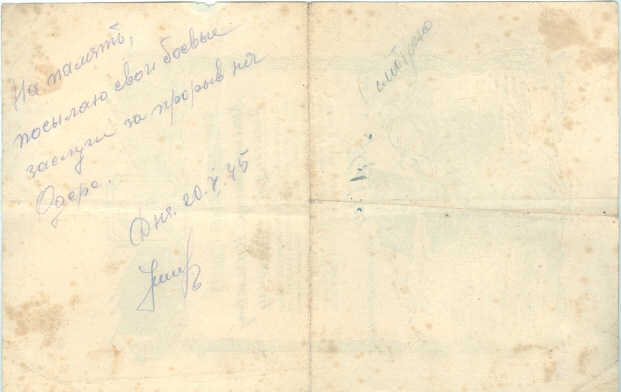 На память,
посылаю свои боевые
заслуги за прорыв на
Одере.
Дня. 20.V.45